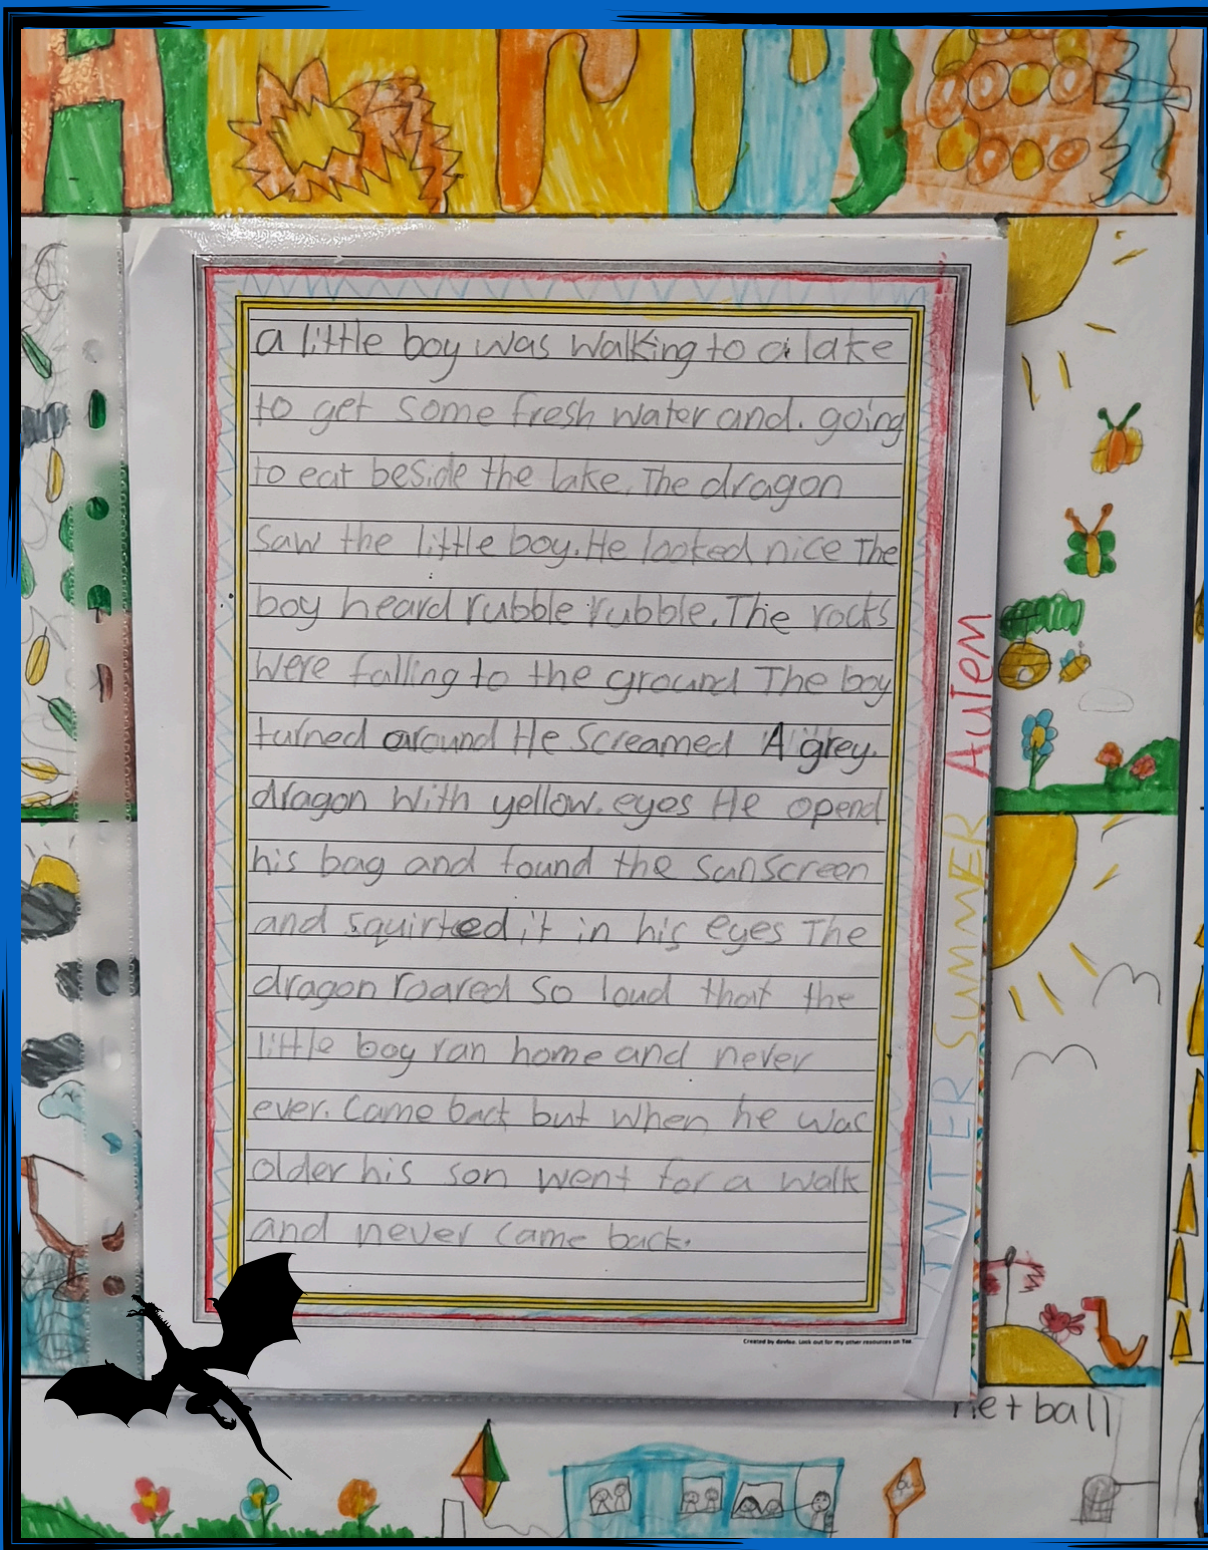 a little boy was walking to a lake
to get some fresh water and. going
to eat beside the lake. The dragon
saw the little boy. He looked nice The
boy heard rubble rubble. The rocks
were falling to the ground The boy
turned around He screamed A grey.
dragon with yellow. eyes He opend
his bag and found the sunscreen
and squirted it in his eyes The
dragon roared so loud that the
little boy ran home and never
ever. came back but when he was
older his son went for a walk
and never came back.
Created by Look out for my other resources on Tes
AuTem
SUMMER
INTER
netball